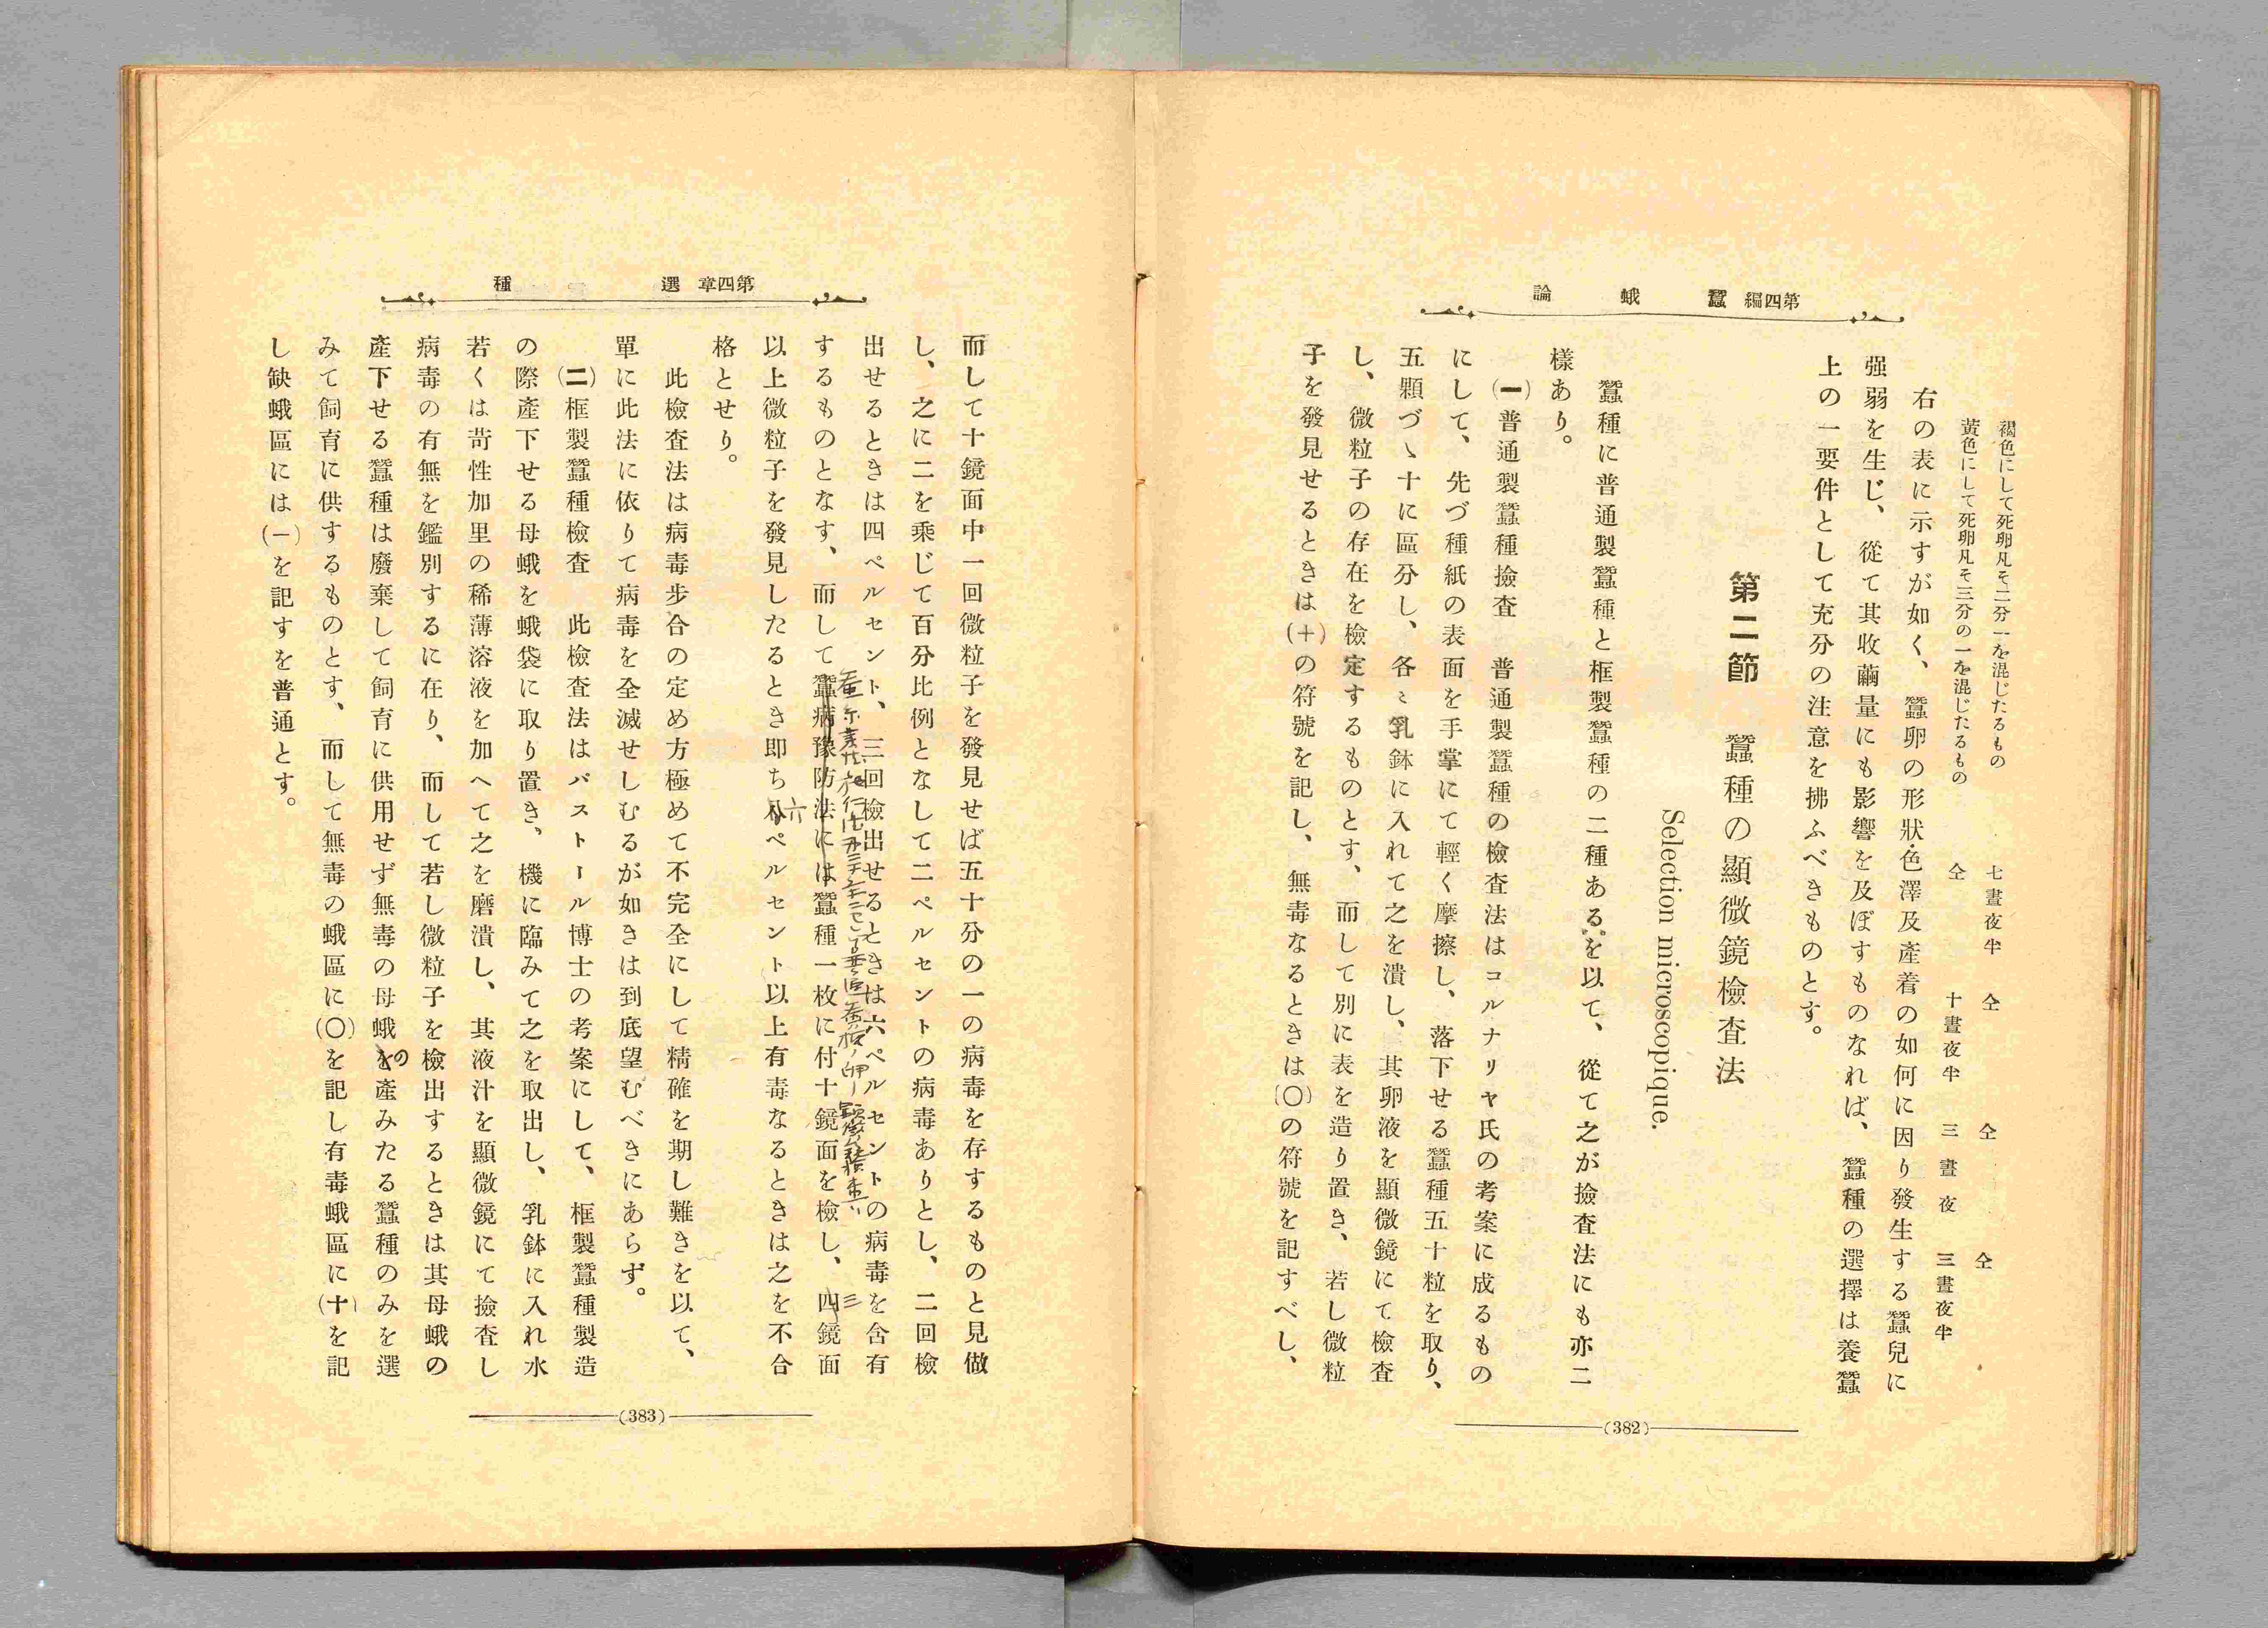 第四編 蠶蛾論
褐色にして死卵凡そ二分一を混じたるもの 七晝夜半 仝 仝 仝
黃色にして死卵凡そ三分の一を混じたるもの 仝 十晝夜半 三晝夜 三晝夜半
右の表に示すが如く、蠶卵の形狀、色澤及產着の如何に因り發生する蠶兒に
强弱を生じ、從て其收繭量にも影響を及ぼすものなれば、蠶種の選擇は養蠶
上の一要件として充分の注意を拂ふべきものとす。
第二節 蠶種の顯微鏡檢査法
Selection microscopique.
蠶種に普通製蠶種と框製蠶種の二種あるを以て、從て之が撿査法にも亦二
樣あり。
(一)普通製蠶種撿査 普通製蠶種の檢査法はコルナリヤ氏の考案に成るもの
にして、先づ種紙の表面を手掌にて輕く摩擦し、落下せる蠶種五十粒を取り、
五顆づゝ十に區分し、各〻乳鉢に入れて之を潰し、其卵液を顯微鏡にて檢査
し、微粒子の存在を檢定するものとす、而して別に表を造り置き、若し微粒
子を發見せるときは(十)の符號を記し、無毒なるときは(〇)の符號を記すべし、
(382)
第四章 選種
而して十鏡面中一回微粒子を發見せば五十分の一の病毒を存するものと見做
し、之に二を乘じて百分比例となして二ペルセントの病毒ありとし、二回檢
出せるときは四ペルセント、三回檢出せるときは六ペルセントの病毒を含有
するものとなす、而して蠶病豫防法には蠶種一枚に付十鏡面を檢し、四鏡面
三
以上微粒子を發見したるとき即ち八ペルセント以上有毒なるときは之を不合
六
格とせり。
此檢査法は病毒步合の定め方極めて不完全にして精確を期し難きを以て、
單に此法に依りて病毒を全滅せしむるが如きは到底望むべきにあらず。
(二)框製蠶種檢査 此檢査法はパストール博士の考案にして、框製蠶種製造
の際產下せる母蛾を蛾袋に取り置き、機に臨みて之を取出し、乳鉢に入れ水
若くは苛性加里の稀薄溶液を加へて之を磨潰し、其液汁を顯微鏡にて撿査し
病毒の有無を鑑別するに在り、而して若し微粒子を檢出するときは其母蛾の
產下せる蠶種は廢棄して飼育に供用せず無毒の母蛾を產みたる蠶種のみを選
の
みて飼育に供するものとす、而して無毒の蛾區に(〇)を記し有毒蛾區に(十)を記
し缺蛾區には(一)を記すを普通とす。
(383)